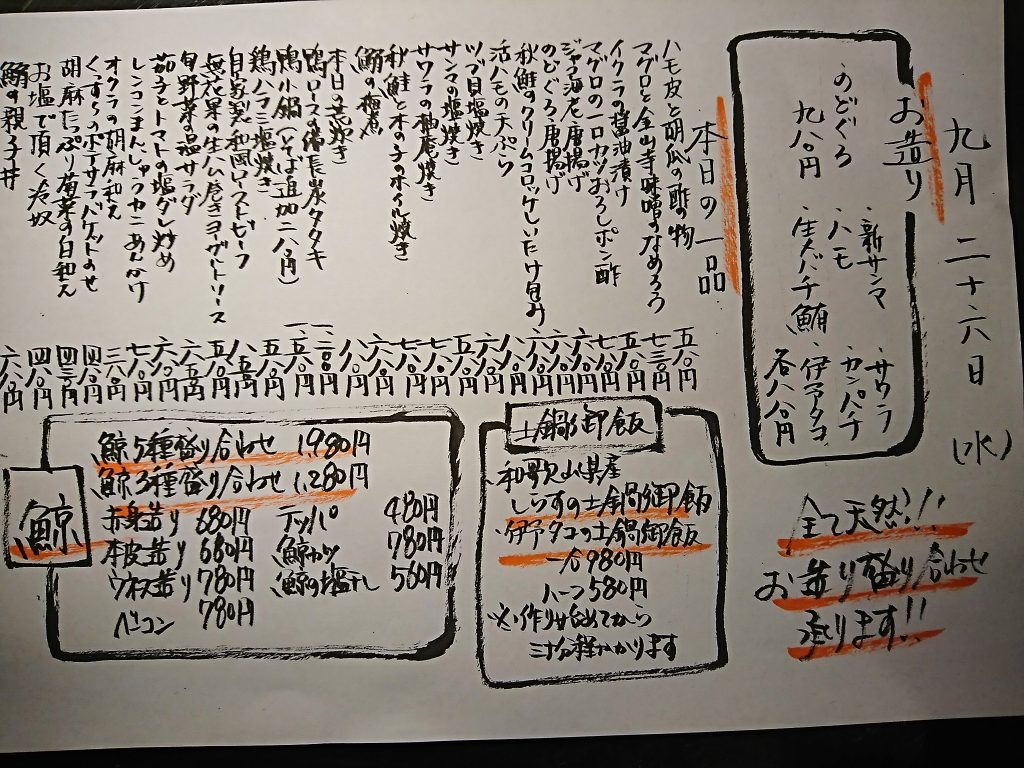 九月二十六日(水)
お造り
・新サンマ ・サワラ
のどぐろ ・ハモ ・カンパチ
九八〇円 ・生バチ鮪 ・伊予タコ
各八八〇円
全て天然!!
お造り盛り合わせ
承ります!!
本日の一品
ハモ皮と胡瓜の酢の物 五八〇円
マグロと金山寺味噌のなめろう 七三〇円
イクラの醤油漬け
マグロの一口カツおろしポン酢
ジャコ海老唐揚げ
のどぐろ唐揚げ
秋鮭のクリームコロッケしいたけ包み
活ハモの天ぷら
ツブ貝塩焼き
サンマの塩焼き
サワラの柚庵焼き
秋鮭と木の子のホイル焼き
鰯の梅煮
本日
鴨ロース備長炭タタキ
鴨小鍋(そば追加二八〇円)
鶏ハラミ塩焼き
自家製和風ローストビーフ
無花果の生ハム巻きヨーグルトソース
旬野菜の温サラダ
茄子とトマトの塩ダレ炒め
レンコンまんじゅうカニあんかけ
オクラの胡麻和え 三八〇円
くずし のポテサラバケットのせ 四八〇円
胡麻たっぷり菊菜の白和え 四三〇円
お塩で頂く冷奴 四八〇円
鰯の親子丼 六八〇円
土鍋御飯
和歌山県産
しらすの土鍋御飯
伊予タコの土鍋御飯
一合980円
ハーフ580円
※作り始めてから
三十分程かかります
鯨
鯨5種盛り合わせ 1,980円
鯨3種盛り合わせ 1,280円
赤身造り 680円 テッパ 480円
本皮造り 680円 鯨カツ 780円
ウネス造り 780円 鯨の塩干し 560円
ベーコン 780円